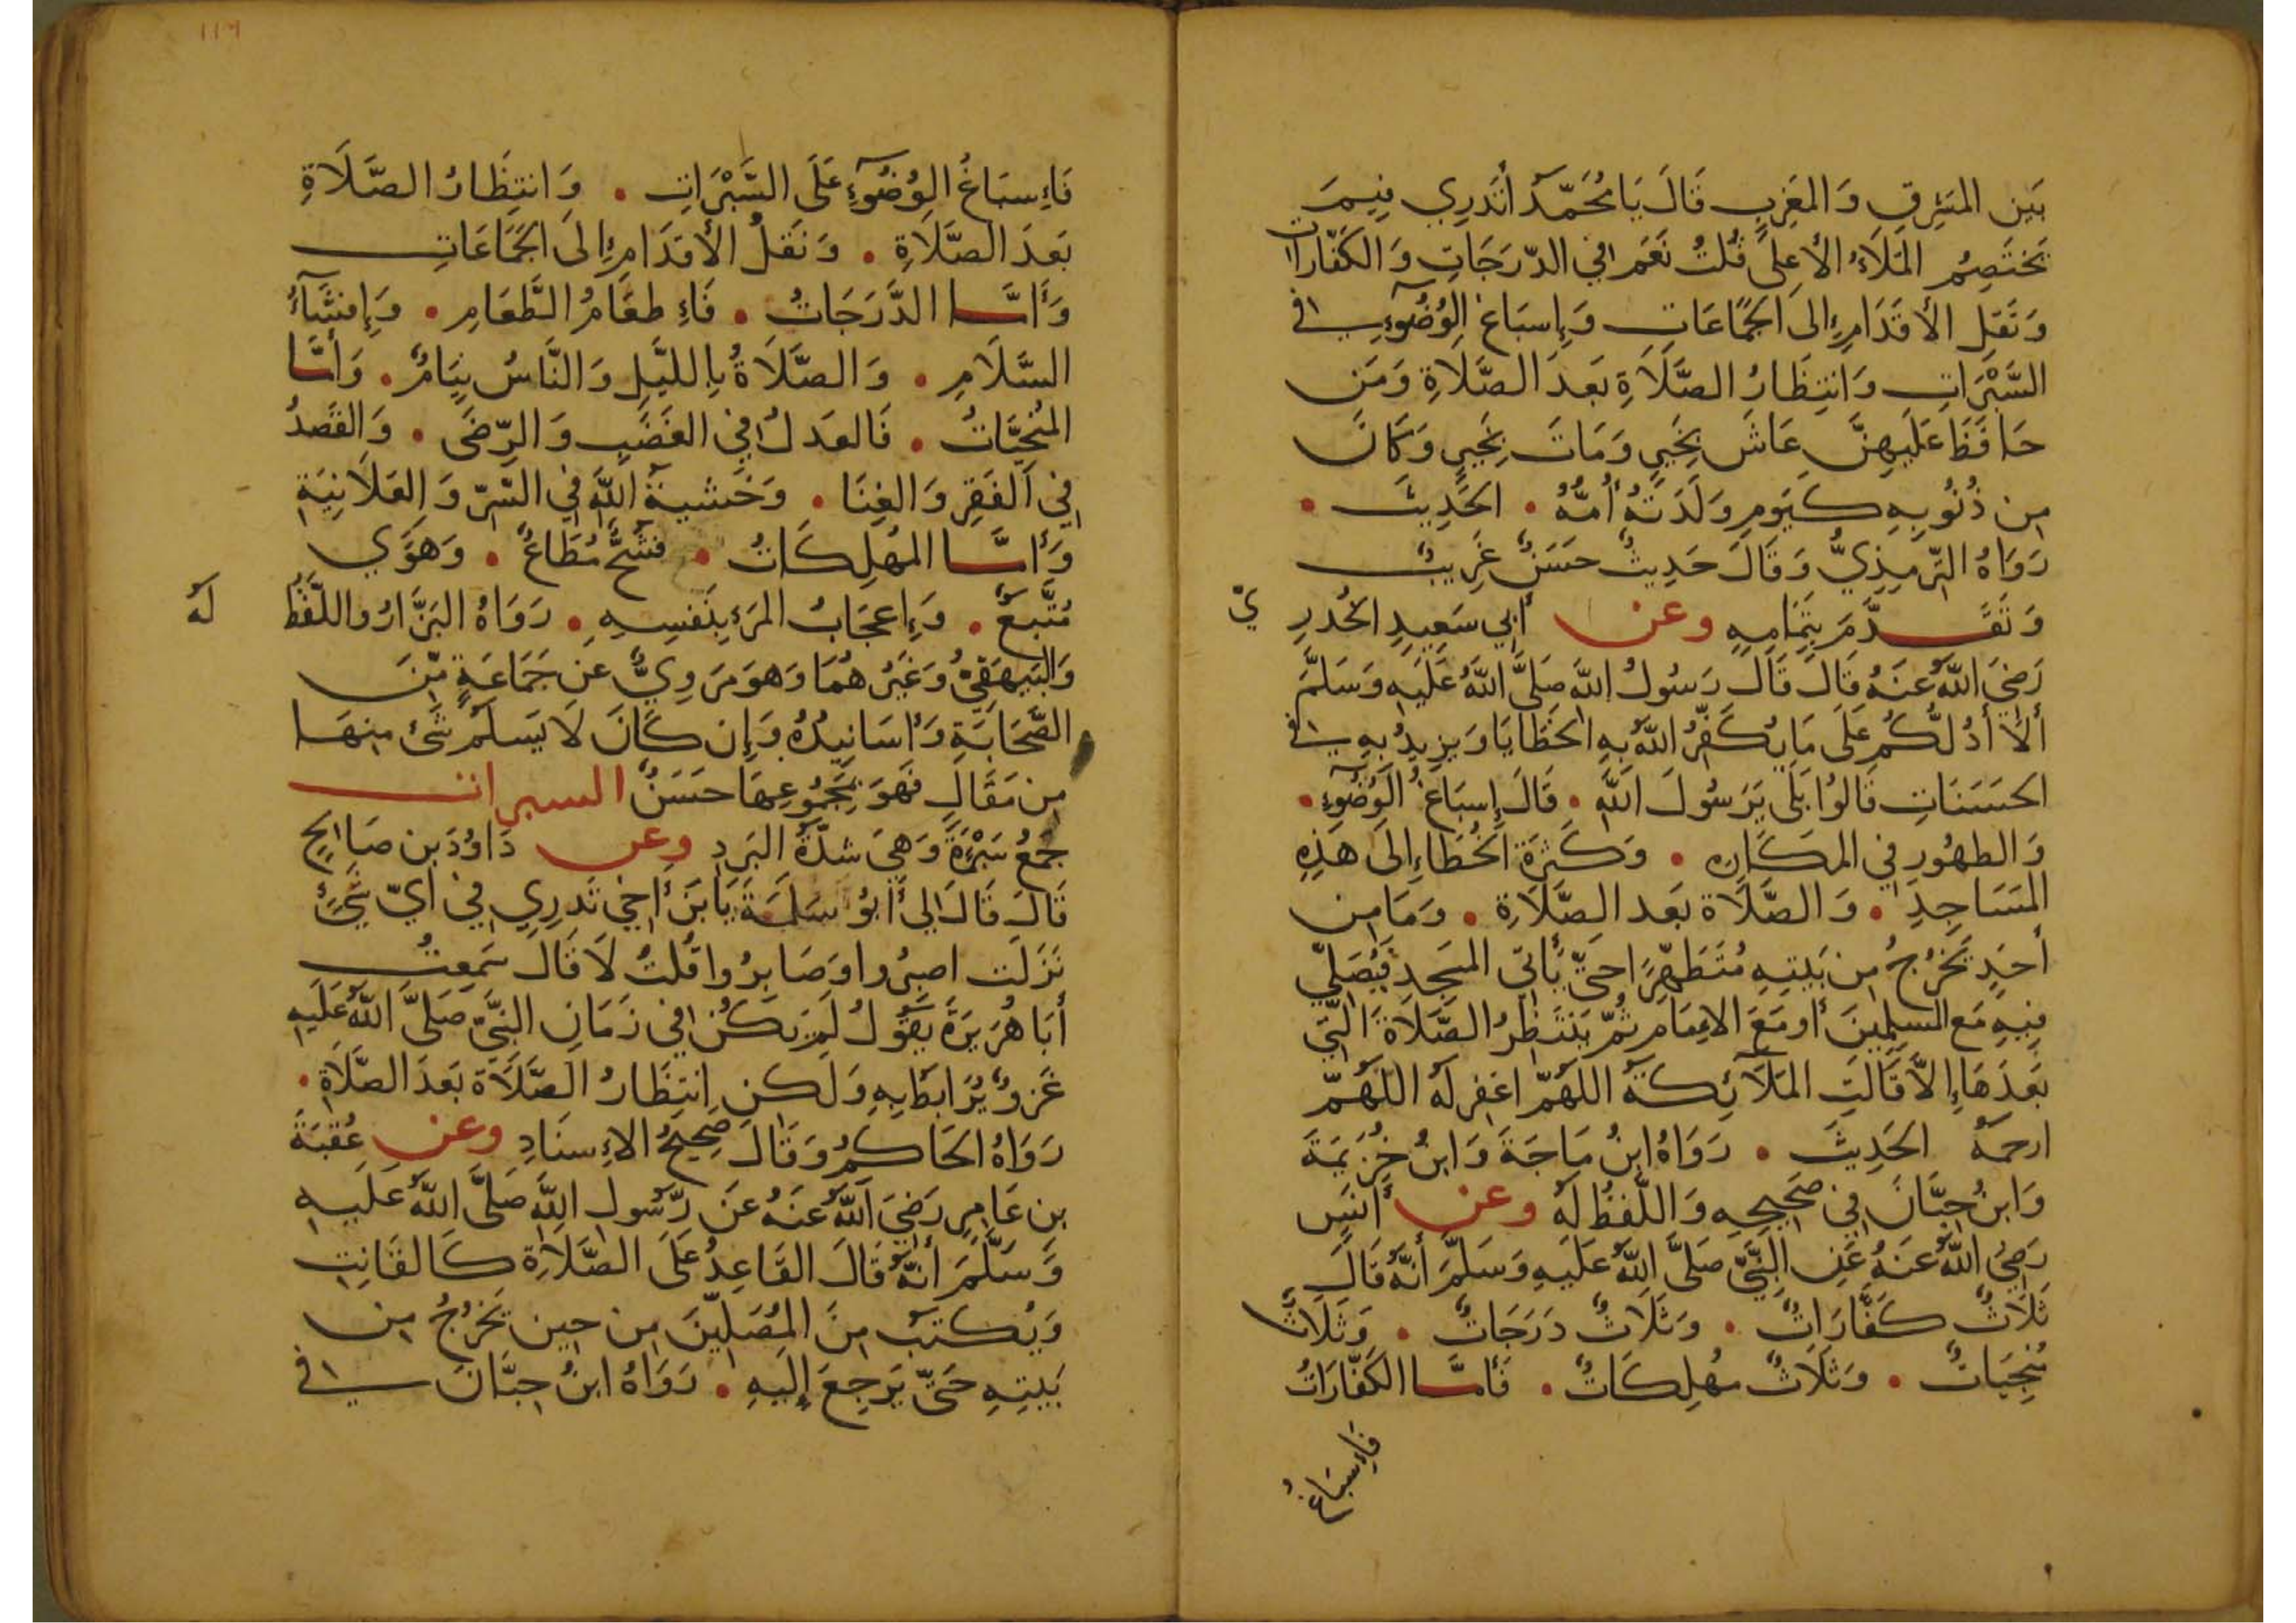 بَين المَشرِقِ وَالمَغرِبِ قَالَ يَا مُحَمَّدُ أتَدرِي فِيمَ
يَختَصِمُ المَلَاءُ الأعلَى قُلتُ نَعَم في الدّرَجَاتِ وَالكَفّارَات
وَنَقلِ الأقدَامِ إلى الجَمَاعَاتِ وَإسبَاغِ الوُضُوءِ في
السَّبْرَاتِ وَانتِظَارُ الصَّلَاةِ بَعدَ الصَّلَاةِ وَمَن
حَافَظَ عَلَيهِنَّ عَاشَ بِخَيرٍ وَمَاتَ بِخَيرٍ وَكَانَ
مِن ذُنُوبِهِ كَيَومِ وَلَدَتهُ أُمُّهُ • الحَدِيثَ •
رَوَاهُ التِّرمِذِيُّ وَقَالَ حَدِيثٌ حَسَنٌ غَرِيبٌ
وَتَقَدَّمَ بِتَمَامِهِ وعن أبي سَعِيدِ الخُدرِيّ
رَضِيَ اللَّهُ عَنهُ قَالَ قَالَ رَسُولُ اللَّه صَلَّى اللَّهُ عَلَيهِ وَسَلَّمَ
ألَا أدُلُّكُم عَلَى مَا يُكَفِّرُ اللَّهُ بِهِ الخَطَايَا وَيَزِيدُ بِهِ في
الحَسَنَاتِ قَالُوا بَلَى يَرَسُولَ اللَّهِ • قَالَ إسبَاغُ الوُضُوءِ •
وَالطهُورِ في المَكَارِهِ • وَكَثرَةُ الخُطَاءِ إلَى هَذِهِ
المَسَاجِدِ • وَالصَّلَاة بَعد الصَّلَاةِ • وَمَا مِن
أحَدٍ يَخرُجُ مِن بَيتِهِ مُتَطَهِّرًا حَتَّى يَأتي المَسجِد فَيُصَلِّي
فِيهِ مَع المُسلِمِينَ أو مَعَ الإمَامِ ثُمّ يَنتَظِرُ الصَّلَاةَ الَّتي
بَعدَهَا إلاَّ قَالَتِ المَلَائِكَةُ اللَّهُمّ اغفِر لَهُ اللَّهُمّ
ارحَمهُ الحَدِيثَ • رَوَاهُ ابنُ مَاجَةَ وَابنُ خُزَيمَةَ
وَابنُ حِبَّانَ في صَحِيحِهِ وَاللَّفظُ لَهُ وعن أنَسٍ
رَضِيَ اللَّهُ عَنهُ عَنِ النَّبِيِّ صَلَّى اللَّهُ عَلَيهِ وَسَلَّمَ أنَّهُ قَالَ
ثَلَاثٌ كَفَّارَاتٌ • وَثَلَاثٌ دَرَجَاتٌ • وَثَلَاثٌ
مُنجِيَاتٌ • وَثَلَاثٌ مُهلِكَاتٌ • فَأمَّا الكَفَّارَاتُ
فإسبَاغُ
١١٩
فَإسبَاغُ الوُضُوءِ عَلَى السَّبْرَاتِ • وَانتِظَارُ الصَّلَاةِ
بَعدَ الصَّلَاةِ • وَنَقلُ الأقدَامِ إلَى الجَمَاعَاتِ
وَأمَّا الدَّرَجَاتُ • فَإطعَامُ الطَّعَامِ • وَإفشَاءُ
السَّلَامِ • وَالصَّلَاةُ بِالليَّلِ وَالنَّاسُ نِيَامٌ • وَأمَّا
المُنجِيَّاتُ • فَالعَدلُ في الغَضَبِ وَالرِّضَى • وَالقَصدُ
في الفَقِرِ وَالغِنَا • وَخَشيةُ اللَّهِ في السِّرّ وَالعَلَانِيَةِ
وَأمَّا المُهلِكَاتُ • فشُحٌّ مُطَاعٌ • وَهَوًى
مُتَّبَعٌ • وَإعجَابُ المَرءِ بِنَفسِهِ • رَوَاهُ البَزَّارُ واللّفظُ لَهُ
وَالبَيهَقِيّ وَغَيرُهُمَا وَهوَ مَروِيٌّ عَن جَمَاعَةٍ مِّنَ
الصَّحَابَةِ وَأسَانِيدُهُ وَإن كَانَ لَا يَسلَمُ شَيءٌ مِنهَا
مِن مَقَالٍ فَهوَ بِمَجمُوعِهَا حَسَنٌ السبرات
جَمعُ سَبْرَةَ وَهِيَ شدّةُ البَردِ وعن دَاوُدَ بن صَالِحٍ
قَالَ قَالَ لِي أبُو سَلَمَةَ يَا بنَ أخي تَدرِي في أيِّ شَيءٍ
نَزَلَت اصبِرُوا وَصَابِرُوا قُلتُ لَا قَالَ سَمِعتُ
أبَا هُرَيرَةَ يَقُولُ لَم يَكُن في زَمَانِ النَّبيِّ صَلَّى اللَّهُ عَلَيهِ
غَزوٌ يُرَابَطُ بِهِ وَلَكن انتِظَارُ الصَّلَاة بَعدَ الصَّلَاةِ •
رَوَاهُ الحَاكِمُ وَقَالَ صَحِيحُ الإسنَادِ وعن عُقبَةَ
بنِ عَامِرٍ رَضِيَ اللَّهُ عَنهُ عَن رَّسُولِ اللَّهِ صَلَّى اللَّهُ عَلَيهِ
وَسَلَّمَ أنَّهُ قَالَ القَاعِدُ عَلَى الصَّلَاةِ كَالقَانِتِ
وَيُكتَبُ مِنَ المُصَلِّينَ مِن حِينِ يَخرُجُ مِن
بَيتِهِ حَتَّى يَرجِعَ إلَيهِ • رَوَاهُ ابنُ حِبَّانَ في